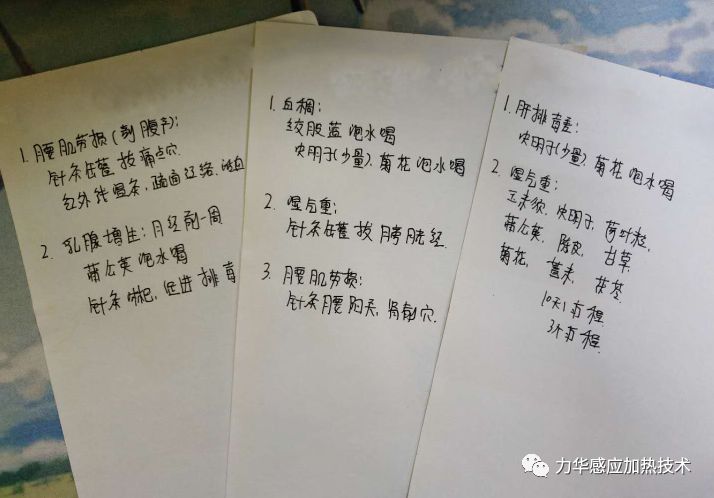 1. 腰肌劳损(剖腹产):
针灸任蓬 拔痛点穴.
红外线温灸, 疏通经络, 活血
2. 乳腺增生: 月经前一周
蒲公英 泡水喝
针灸 淋巴, 促进 排毒
1. 血稠:
绞股蓝 泡水喝
决明子(少量), 菊花 泡水喝
2. 湿气重:
针灸 拔 膀胱经.
3. 腰肌劳损:
针灸 腰阳关, 肾俞穴.
1. 肝排毒差:
决明子(少量), 菊花 泡水喝
2. 湿气重:
玉米须, 决明子, 荷叶粒,
蒲公英, 陈皮, 甘草,
菊花, 薏米, 茯苓
10天1疗程
3个疗程.
力华感应加热技术